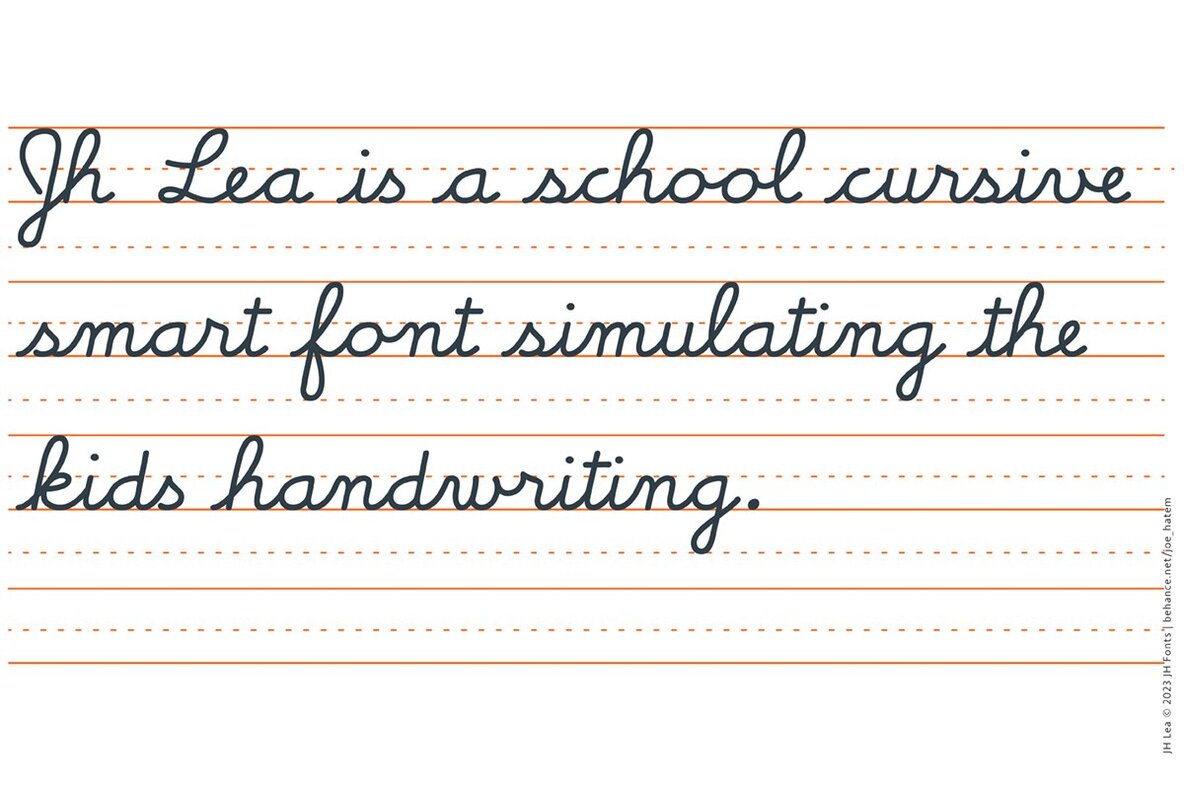 Jh Lea is a school cursive
smart font simulating the
kids handwriting.
JH Lea © 2023 JH Fonts | behance.net/joe_hatem